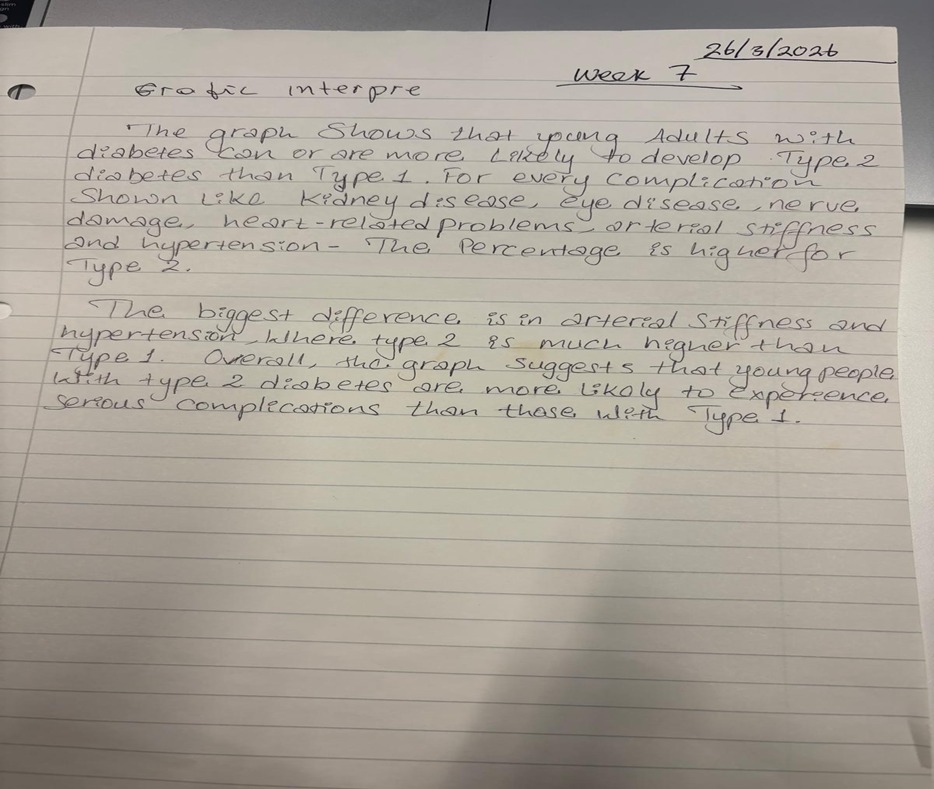 26/3/2026
Week 7
Grafic interpre
The graph Shows that young Adults with
diabetes can or are more Likely to develop Type 2
diabetes than Type 1. For every complication
Shown Like Kidney disease, eye disease, nerve
damage, heart-related problems, arterial stiffness
and hypertension- The Percentage is higher for
Type 2.
The biggest difference is in arterial Stiffness and
hypertension, Where type 2 is much higher than
Type 1. Overall, the graph Suggests that young people
With type 2 diabetes are more likely to experience
serious complications than those with Type 1.